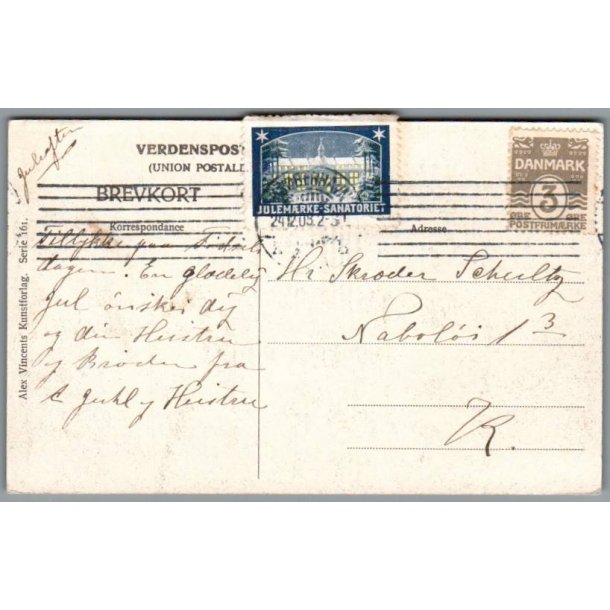 Juleaften
VERDENSPOST
(UNION POSTALE
BREVKORT
Korrespondance
JULEMÆRKE-SANATORIET
24.12.08.2-3
DANMARK
3
ØRE ØRE
POSTFRIMÆRKE
Adresse
Alex Vincents Kunstforlag. Serie 161.
Tillykke paa Fødsels
dagen. En glædelig
Jul ønskes dig
og din Hustru
og Broder fra
og Hustru
Hr Skræder Schultz
Naboløs 1 3
K.